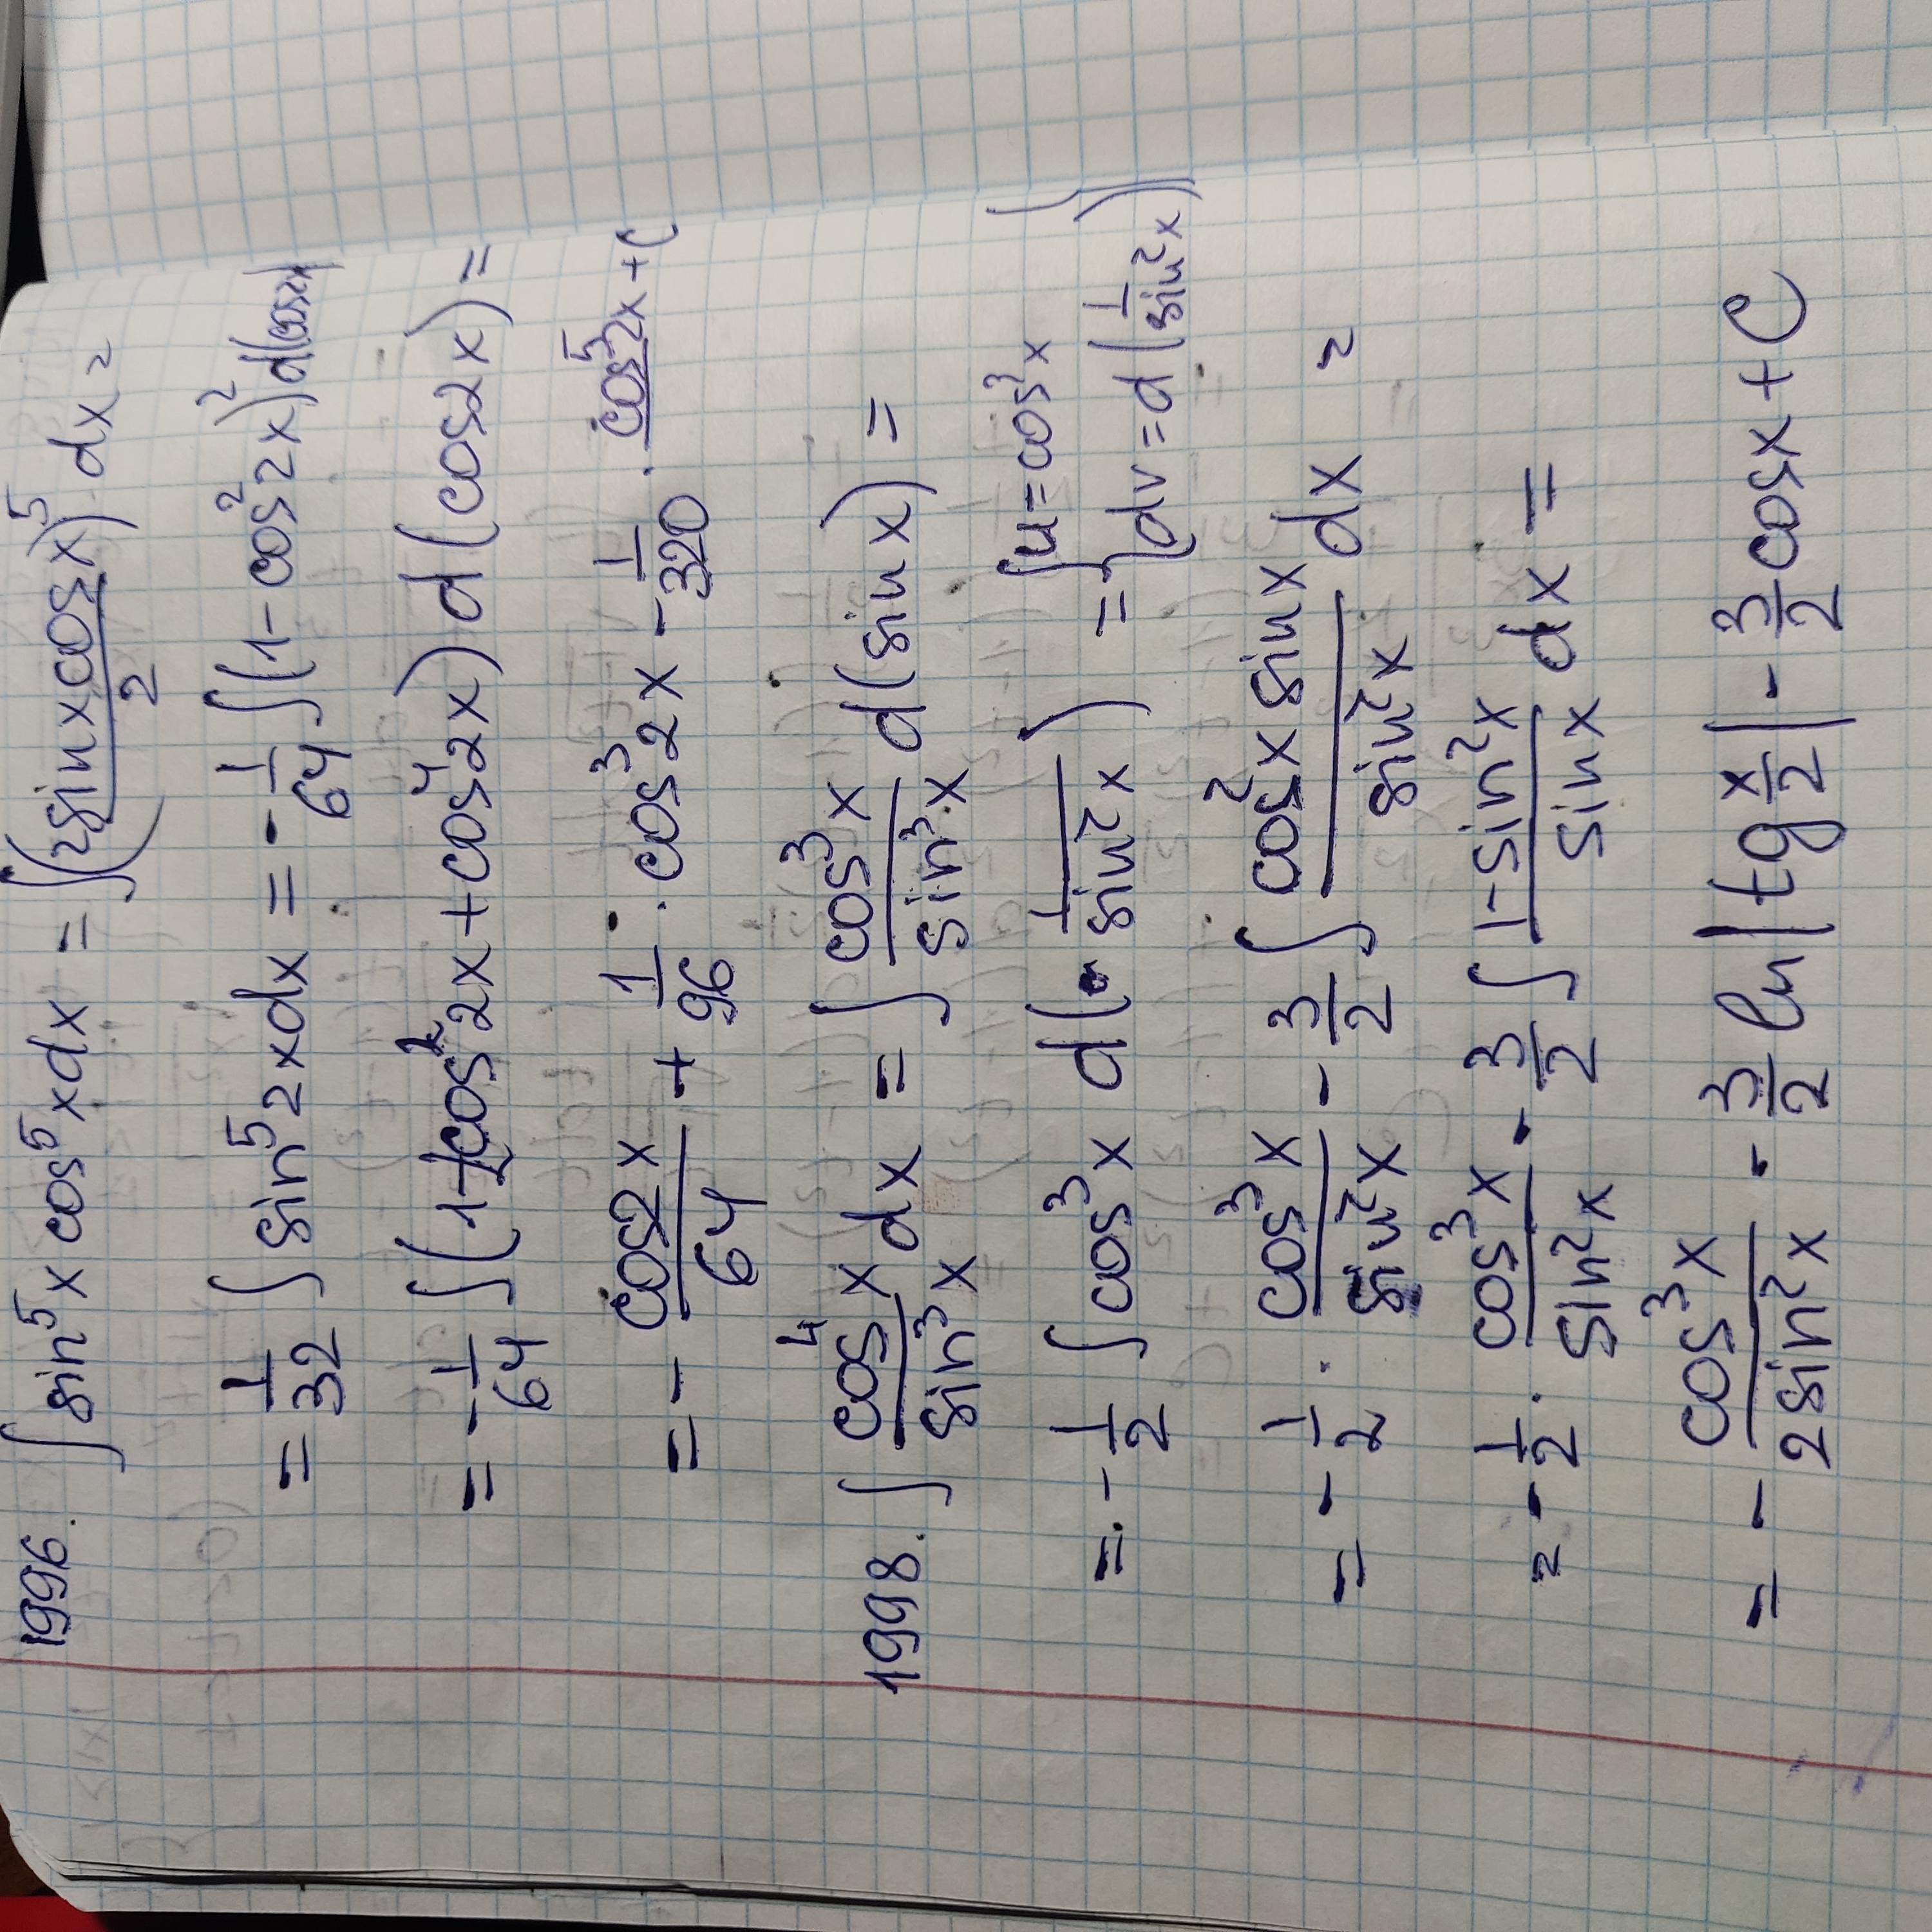 1996. ∫ sin⁵x cos⁵x dx = ∫(2sinxcosx/2)⁵ dx =
= 1/32 ∫ sin⁵2x dx = -1/64 ∫(1-cos²2x)² d(cos2x)
= -1/64 ∫(1-2cos²2x+cos⁴2x) d(cos2x) =
= - cos2x/64 + 1/96 · cos³2x - 1/320 · cos⁵2x + C
1998. ∫ cos⁴x/sin³x dx = ∫ cos³x/sin³x d(sinx) =
= -1/2 ∫ cos³x d(1/sin²x) = {u = cos³x
dv = d(1/sin²x)}
= -1/2 · cos³x/sin²x - 3/2 ∫ cos²x sinx/sin²x dx =
= -1/2 · cos³x/sin²x - 3/2 ∫ 1-sin²x/sinx dx =
= - cos³x/2sin²x - 3/2 ln|tg x/2| - 3/2 cosx + C